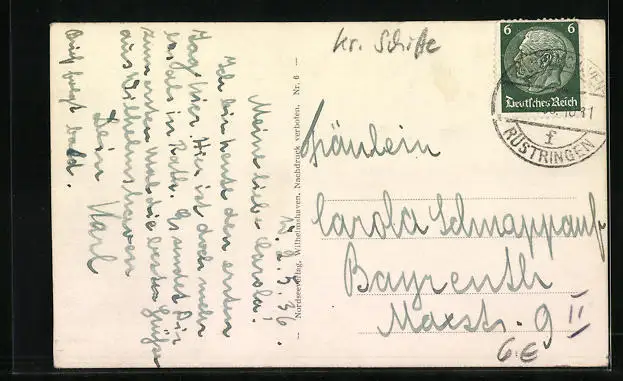 kr. Schiffe
6 6
Deutsches Reich
RÜSTRINGEN
f
Fräulein
Carola Schnappauf
Bayreuth
Maxstr. 9 II
G.E
Nordseeverlag, Wilhelmshaven, Nachdruck verboten. Nr. 6
5.36.
Meine liebe Carola!
Ich bin heute den ersten
Tag hier. Hier ist doch mehr
es als in Es sendet Dir
zum ersten mal die besten Grüße
aus Wilhelmshaven
Dein Karl
Brief folgt bald.